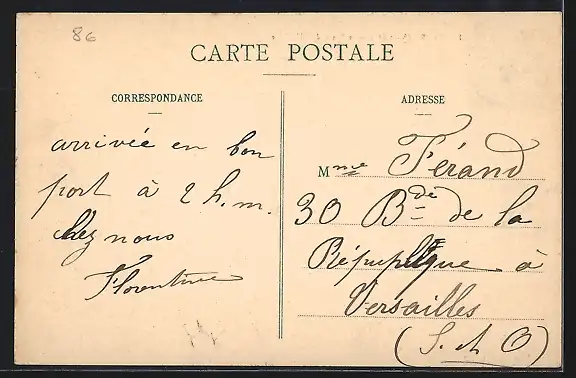 86
CARTE POSTALE
CORRESPONDANCE
arrivée en bon
port à 2 h. m.
chez nous
Florentine
ADRESSE
Mme Férand
30 Bde de la
République à
Versailles
(S. et O)